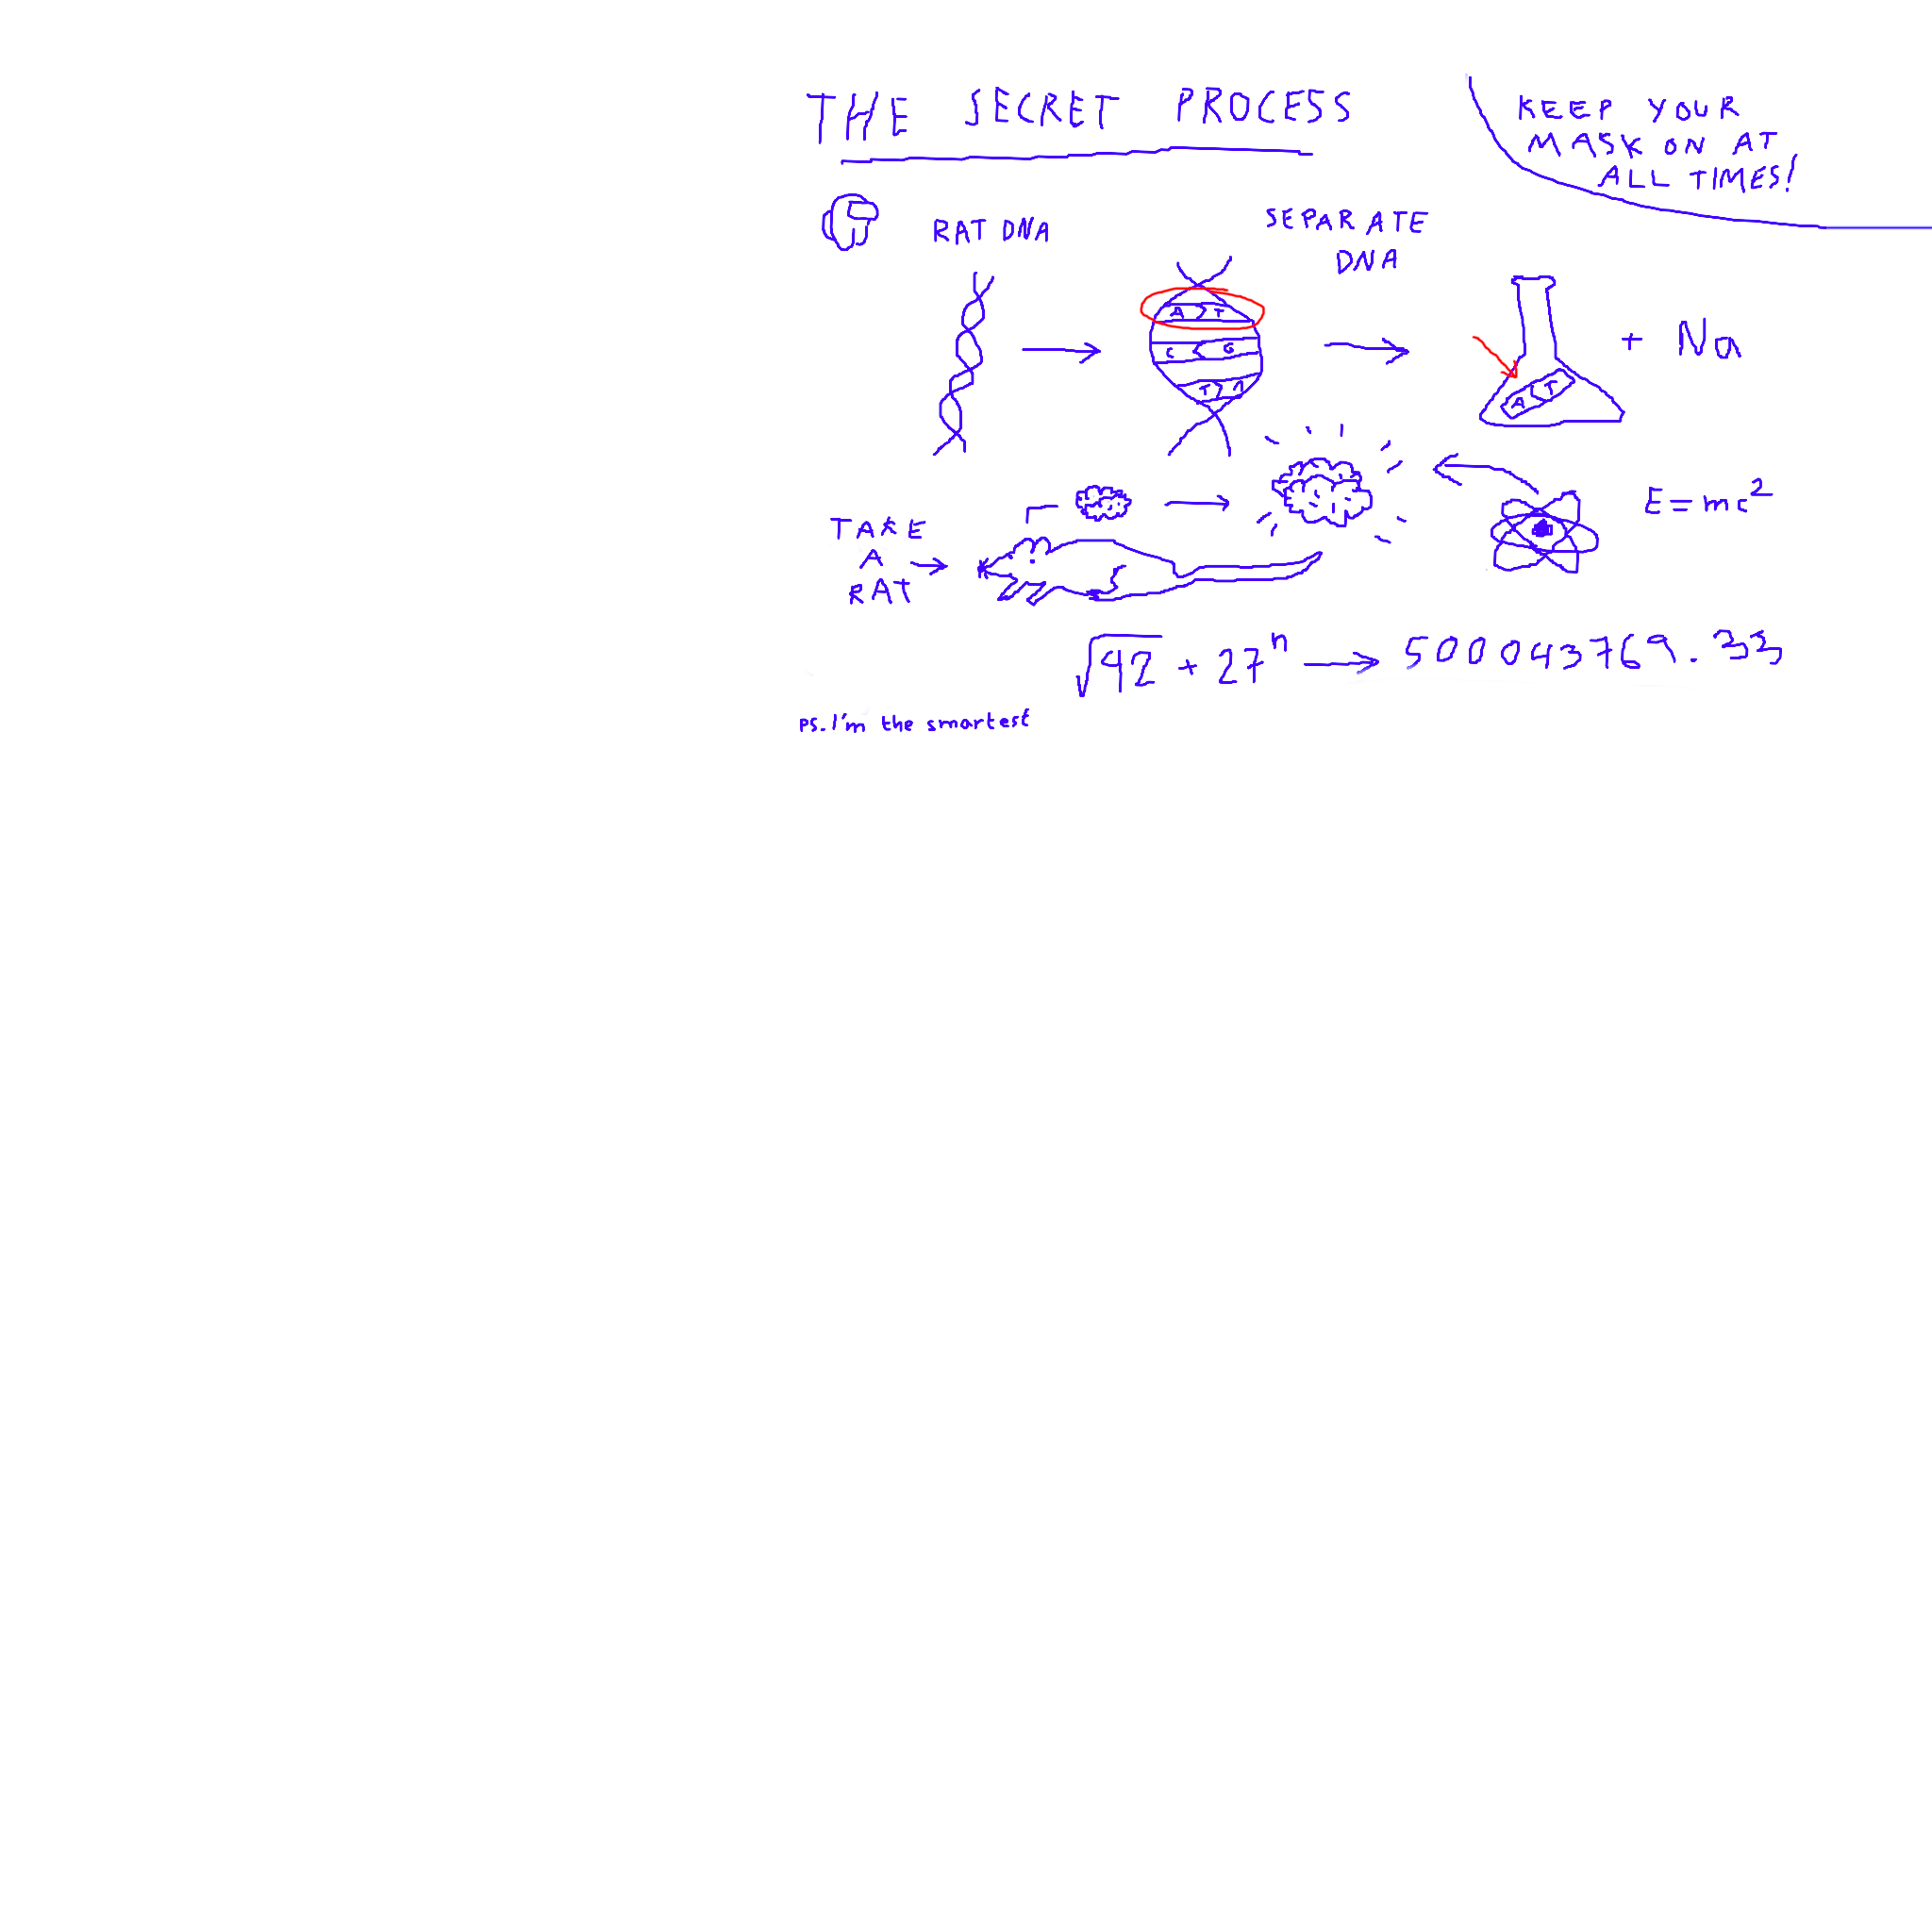 THE SECRET PROCESS
KEEP YOUR
MASK ON AT
ALL TIMES!
RAT DNA
SEPARATE
DNA
A T
C G
T A
A T
+ Na
E=mc²
TAKE
A
RAT
√42 + 27ⁿ → 500043769.33
PS. I'm the smartest